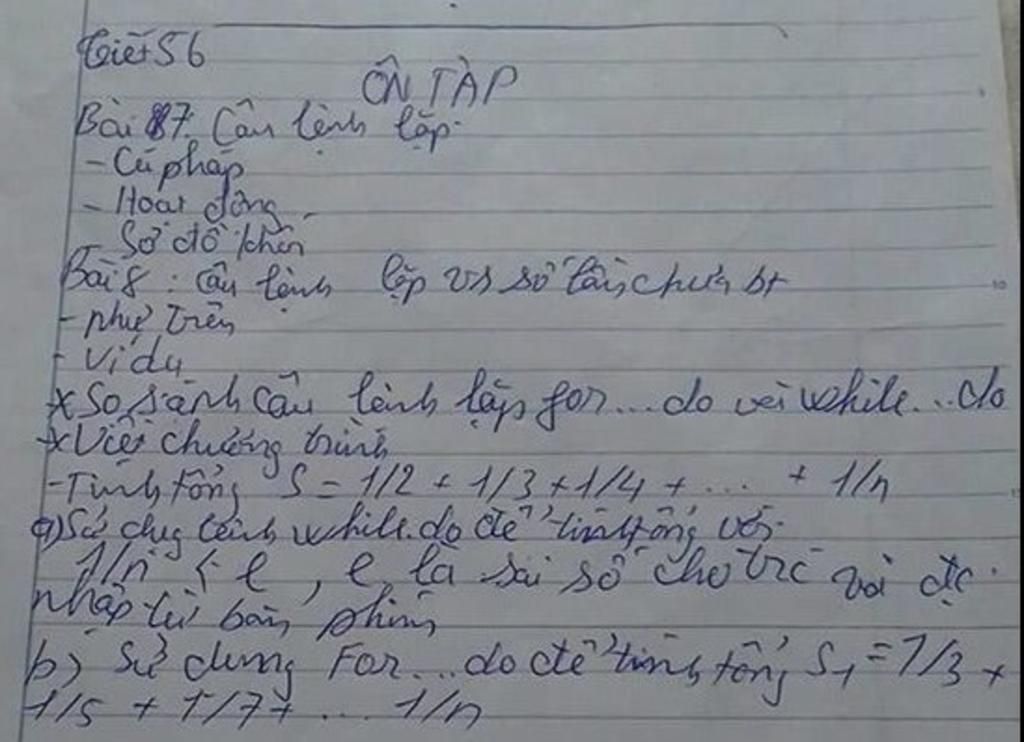 Tiết 56
ÔN TẬP
Bài 7: Câu lệnh lặp.
- Cú pháp
- Hoạt động
- Sơ đồ khối
Bài 8: Câu lệnh lặp vs số lần chưa bt
- như trên
- Ví dụ
* So sánh câu lệnh lặp for...do với while...do
* Viết chương trình
- Tính tổng S = 1/2 + 1/3 + 1/4 + ... + 1/n
a) Sử dụg lệnh while.do để tính tổng với
1/n < e, e là sai số cho trc và đc
nhập từ bàn phím
b) Sử dụng For...do để tính tổng S1 = 1/3 +
1/5 + 1/7 + ... 1/n